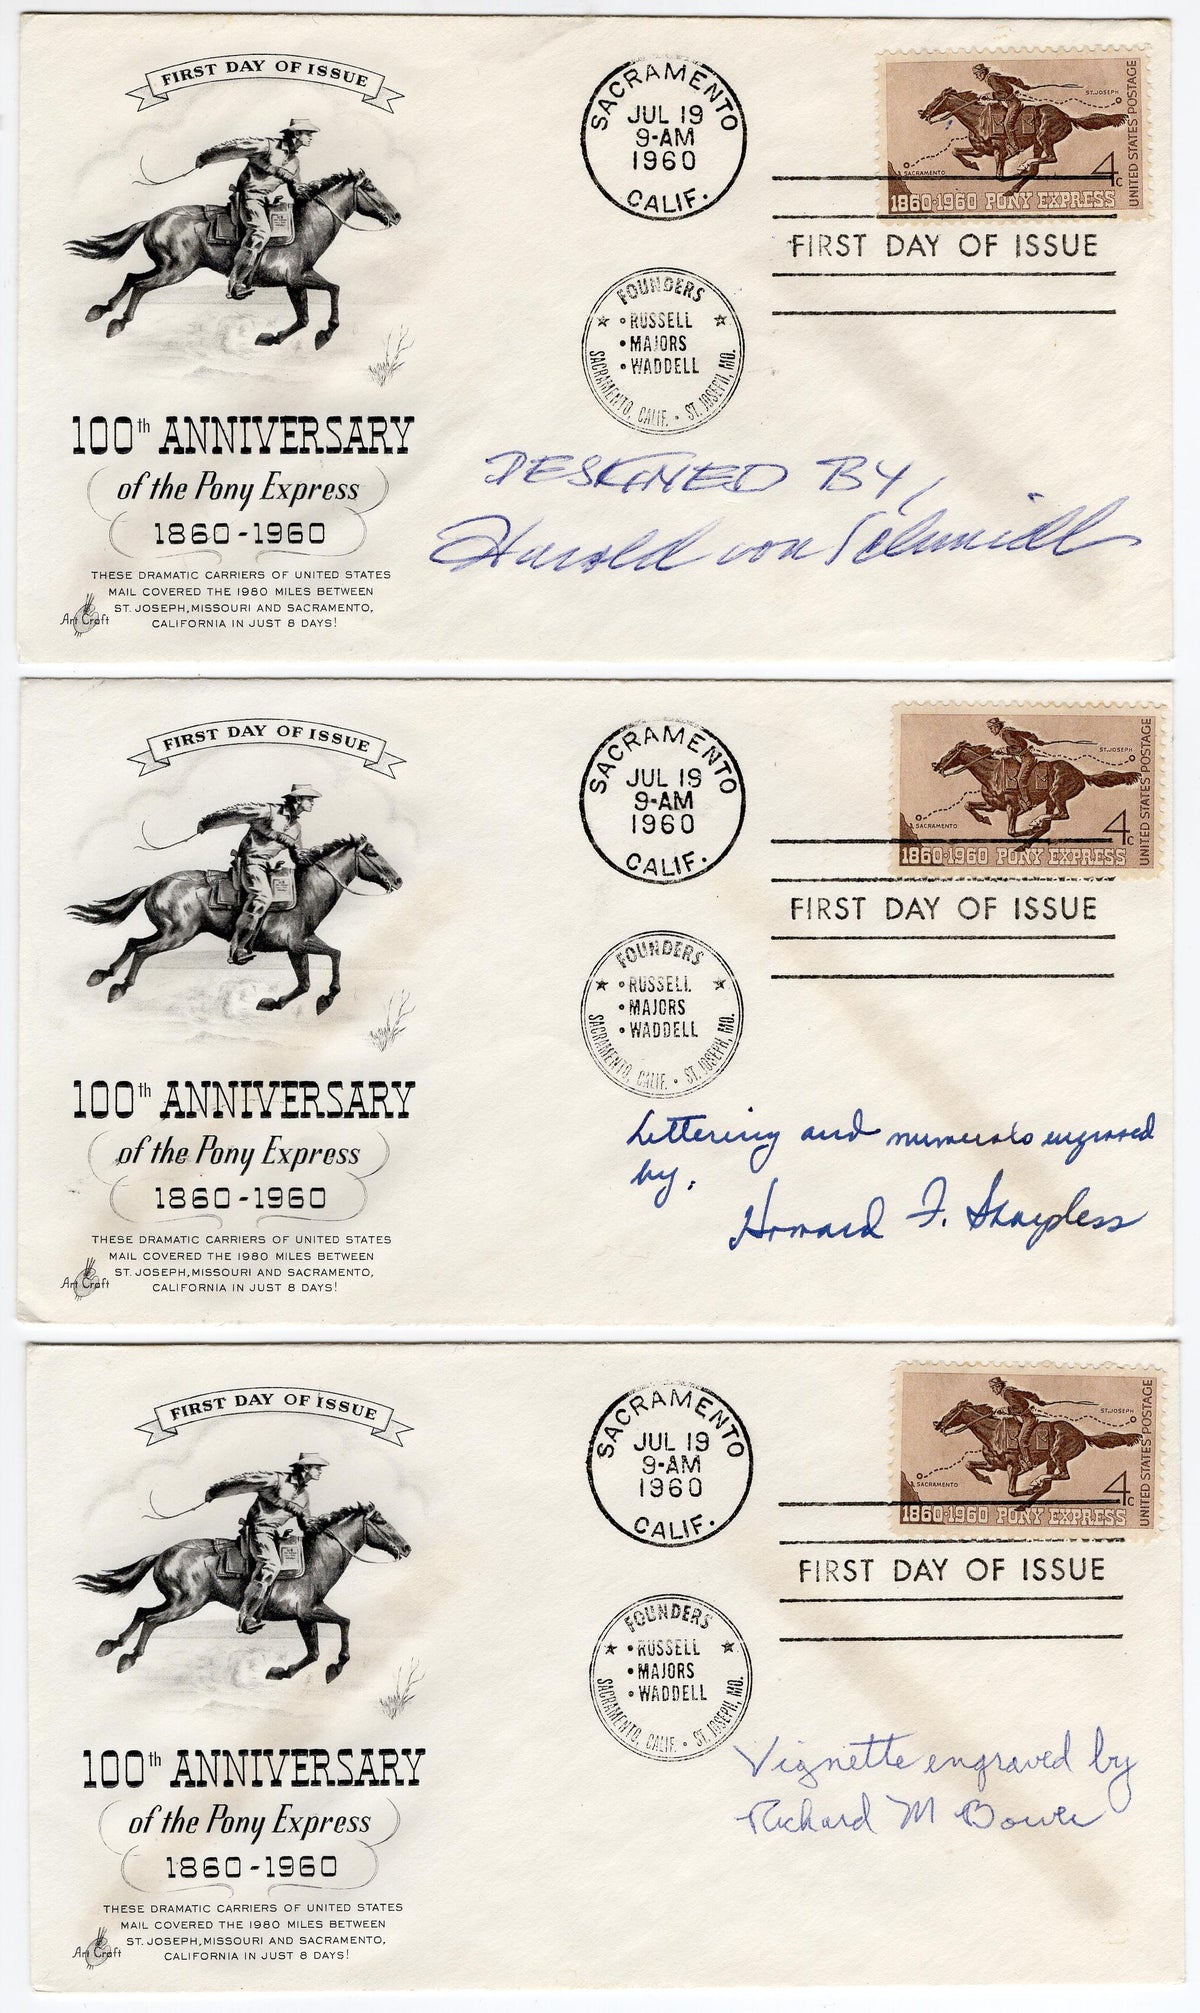 FIRST DAY OF ISSUE
100th ANNIVERSARY
of the Pony Express
1860-1960
THESE DRAMATIC CARRIERS OF UNITED STATES
MAIL COVERED THE 1980 MILES BETWEEN
ST. JOSEPH, MISSOURI AND SACRAMENTO,
CALIFORNIA IN JUST 8 DAYS!
Art Craft
SACRAMENTO
JUL 19
9-AM
1960
CALIF.
FOUNDERS
• RUSSELL
• MAJORS
• WADDELL
SACRAMENTO, CALIF. • ST. JOSEPH, MO.
ST. JOSEPH
SACRAMENTO
4c
1860-1960 PONY EXPRESS
UNITED STATES POSTAGE
FIRST DAY OF ISSUE
DESIGNED BY,
Harold von Schmidt
FIRST DAY OF ISSUE
100th ANNIVERSARY
of the Pony Express
1860-1960
THESE DRAMATIC CARRIERS OF UNITED STATES
MAIL COVERED THE 1980 MILES BETWEEN
ST. JOSEPH, MISSOURI AND SACRAMENTO,
CALIFORNIA IN JUST 8 DAYS!
Art Craft
SACRAMENTO
JUL 19
9-AM
1960
CALIF.
FOUNDERS
• RUSSELL
• MAJORS
• WADDELL
SACRAMENTO, CALIF. • ST. JOSEPH, MO.
ST. JOSEPH
SACRAMENTO
4c
1860-1960 PONY EXPRESS
UNITED STATES POSTAGE
FIRST DAY OF ISSUE
Lettering and numerals engraved
by.
Howard F. Sharpless
FIRST DAY OF ISSUE
100th ANNIVERSARY
of the Pony Express
1860-1960
THESE DRAMATIC CARRIERS OF UNITED STATES
MAIL COVERED THE 1980 MILES BETWEEN
ST. JOSEPH, MISSOURI AND SACRAMENTO,
CALIFORNIA IN JUST 8 DAYS!
Art Craft
SACRAMENTO
JUL 19
9-AM
1960
CALIF.
FOUNDERS
• RUSSELL
• MAJORS
• WADDELL
SACRAMENTO, CALIF. • ST. JOSEPH, MO.
ST. JOSEPH
SACRAMENTO
4c
1860-1960 PONY EXPRESS
UNITED STATES POSTAGE
FIRST DAY OF ISSUE
Vignette engraved by
Richard M Bower